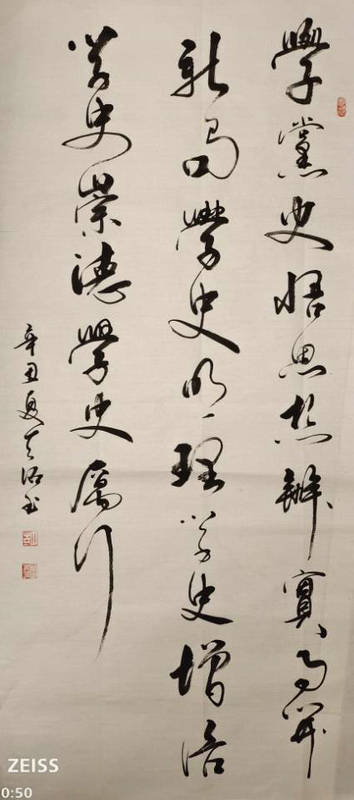 學黨史悟思想辦實事開
新局學史明理学史增信
学史崇德學史厲行
辛丑夏
ZEISS
0:50